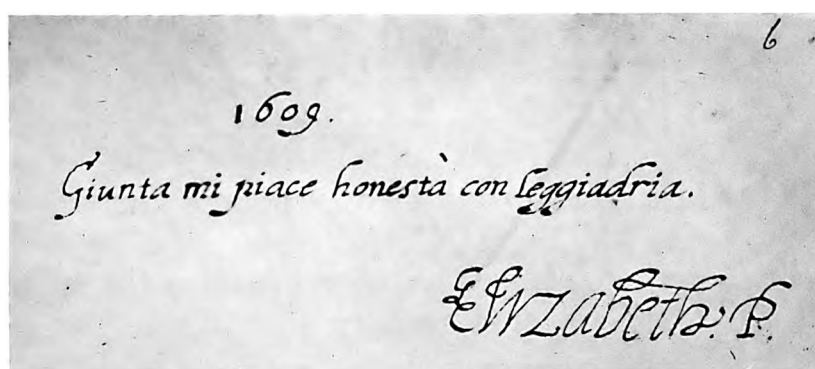 6
1609.
Giunta mi piace honestà con leggiadria.
Elizabeth. P.